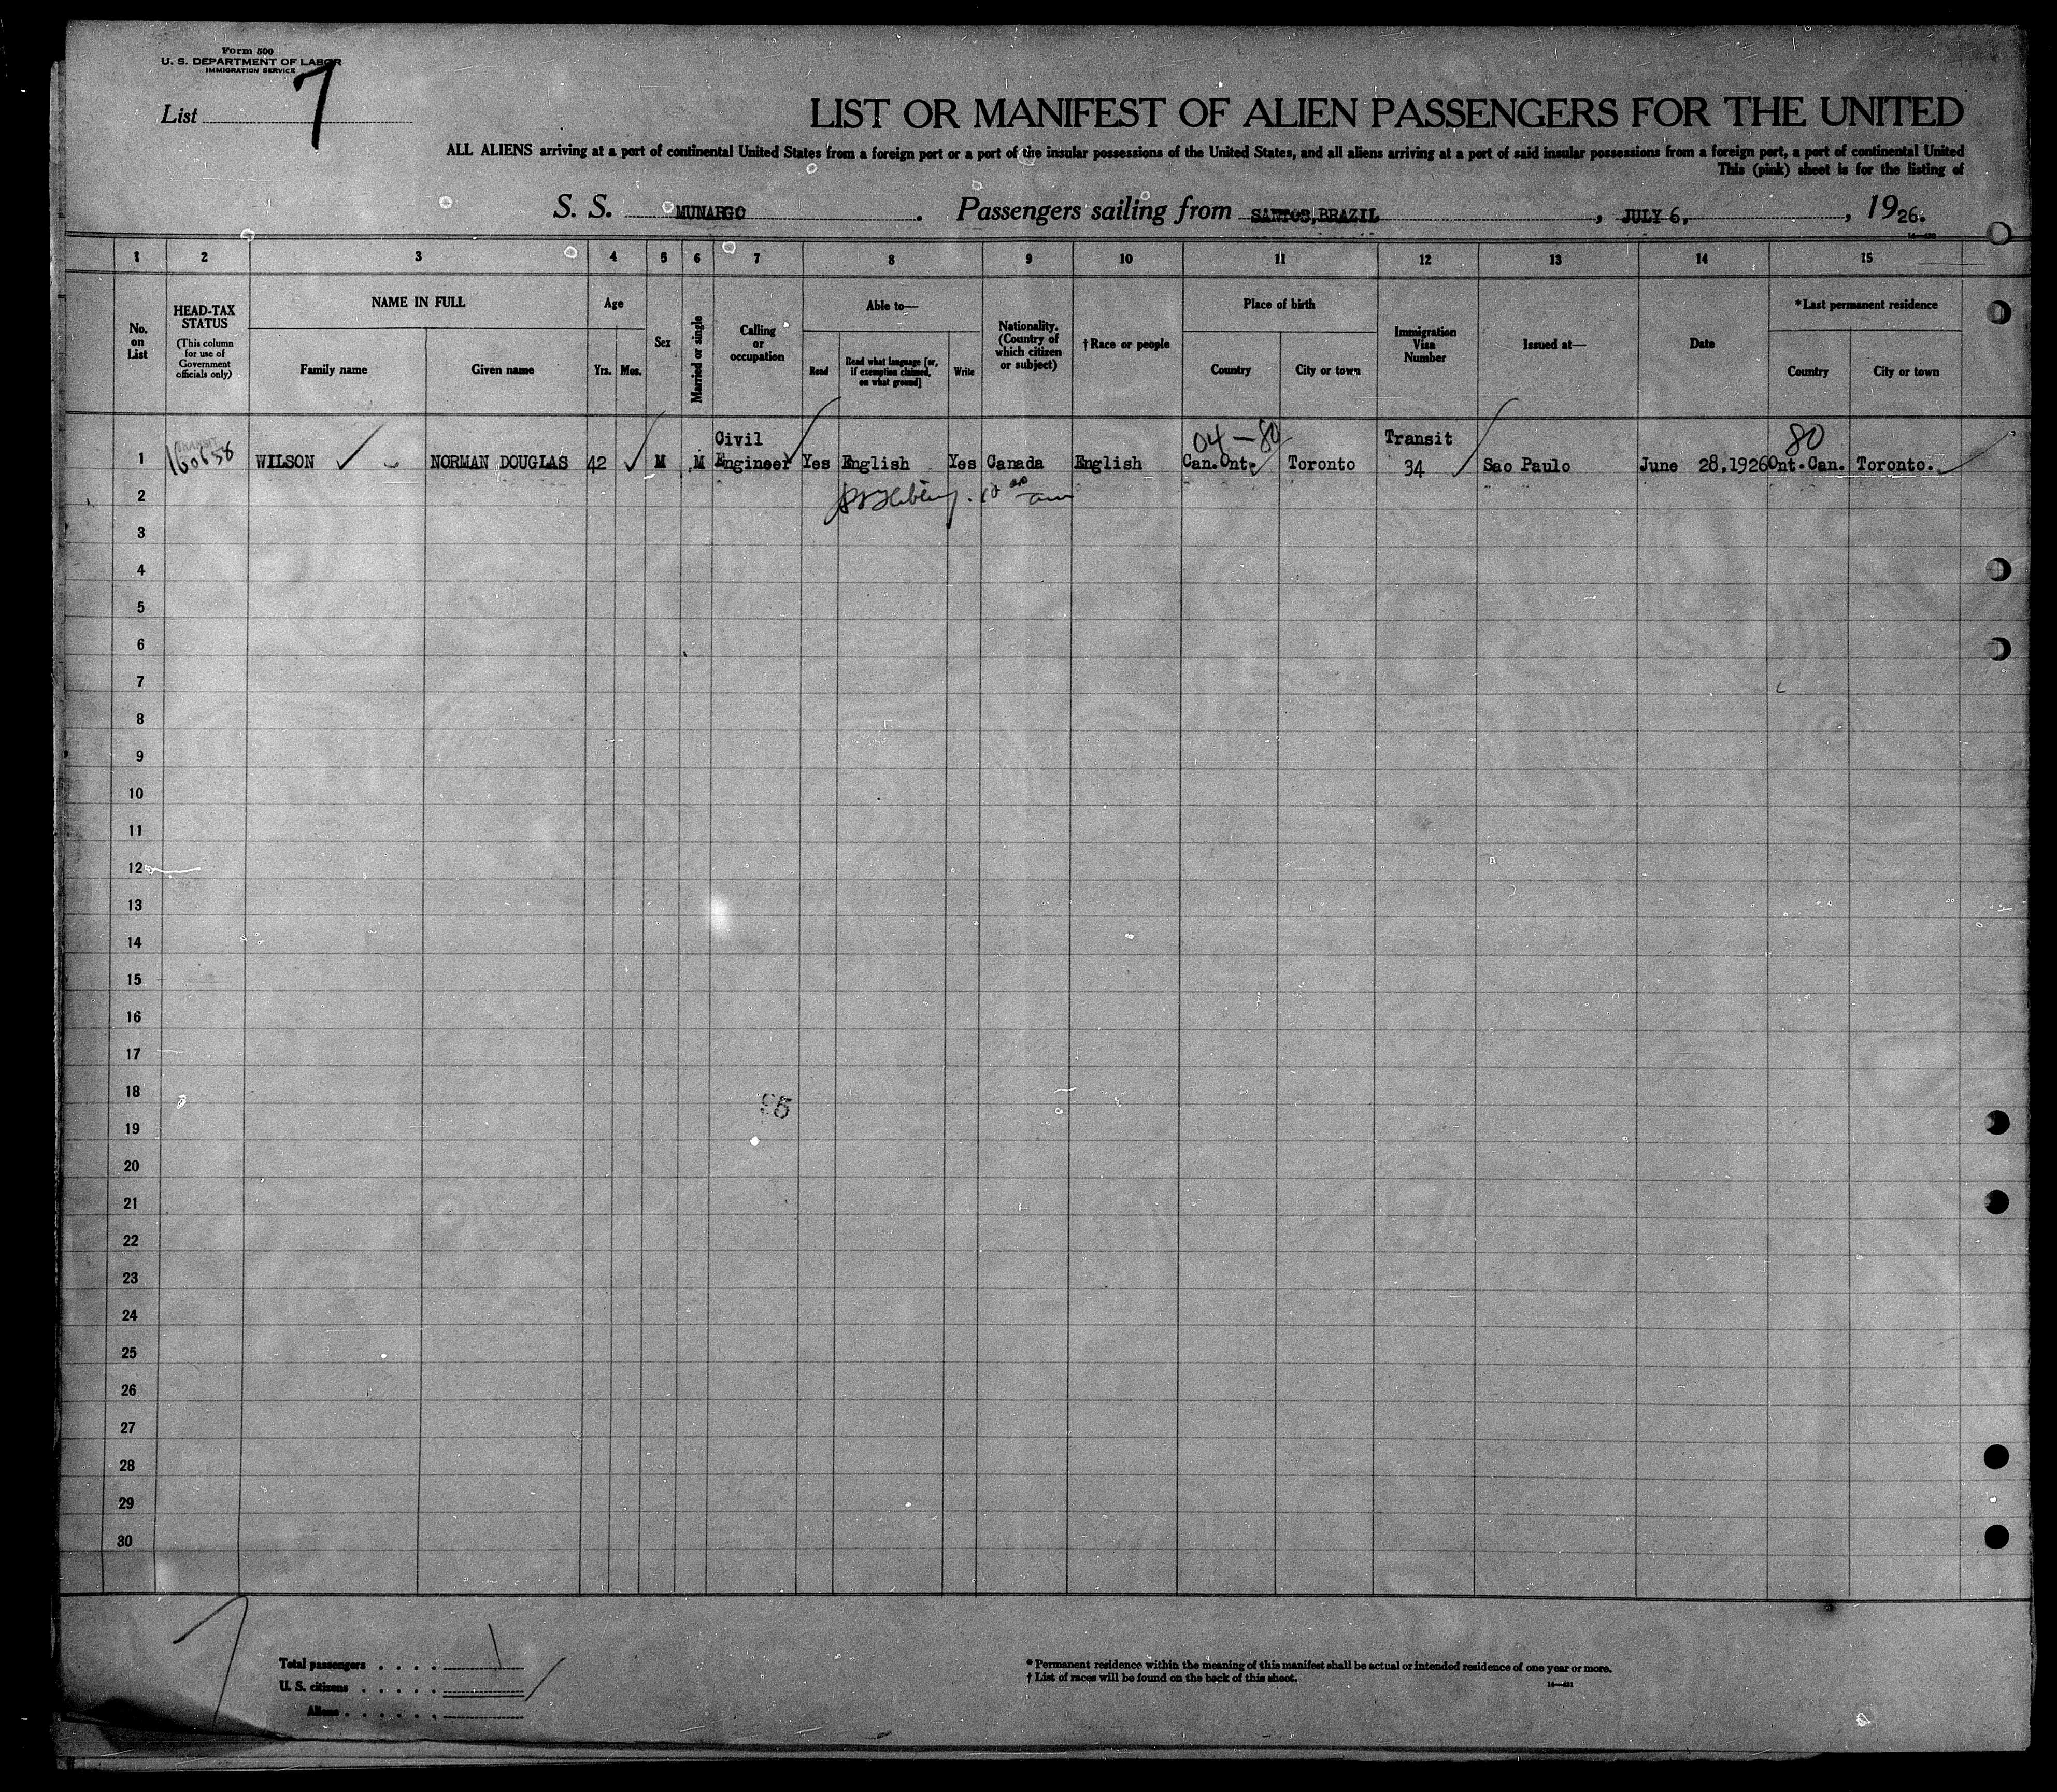 Form 500
U. S. DEPARTMENT OF LABOR
IMMIGRATION SERVICE
List 7
LIST OR MANIFEST OF ALIEN PASSENGERS FOR THE UNITED
ALL ALIENS arriving at a port of continental United States from a foreign port or a port of the insular possessions of the United States, and all aliens arriving at a port of said insular possessions from a foreign port, a port of continental United
This (pink) sheet is for the listing of
S. S. MUNARGO. Passengers sailing from SANTOS, BRAZIL, JULY 6, 1926.
1 2 3 4 5 6 7 8 9 10 11 12 13 14 15
No. on List
HEAD-TAX STATUS (This column for use of Government officials only)
NAME IN FULL
Family name
Given name
Age
Yrs.
Mos.
Sex
Married or single
Calling or occupation
Able to—
Read
Read what language [or, if exemption claimed, on what ground]
Write
Nationality. (Country of which citizen or subject)
†Race or people
Place of birth
Country
City or town
Immigration Visa Number
Issued at—
Date
*Last permanent residence
Country
City or town
Civil 04-80 Transit 80
1 TRANSIT WILSON NORMAN DOUGLAS 42 M M Engineer Yes English Yes Canada English Can.Ont. Toronto 34 Sao Paulo June 28.1926 Ont.Can. Toronto.
2
3
4
5
6
7
8
9
10
11
12
13
14
15
16
17
18
19
20
21
22
23
24
25
26
27
28
29
30
Total passengers . . . . 1
U. S. citizens . . . . .
Aliens . . . . . .
* Permanent residence within the meaning of this manifest shall be actual or intended residence of one year or more.
† List of races will be found on the back of this sheet.